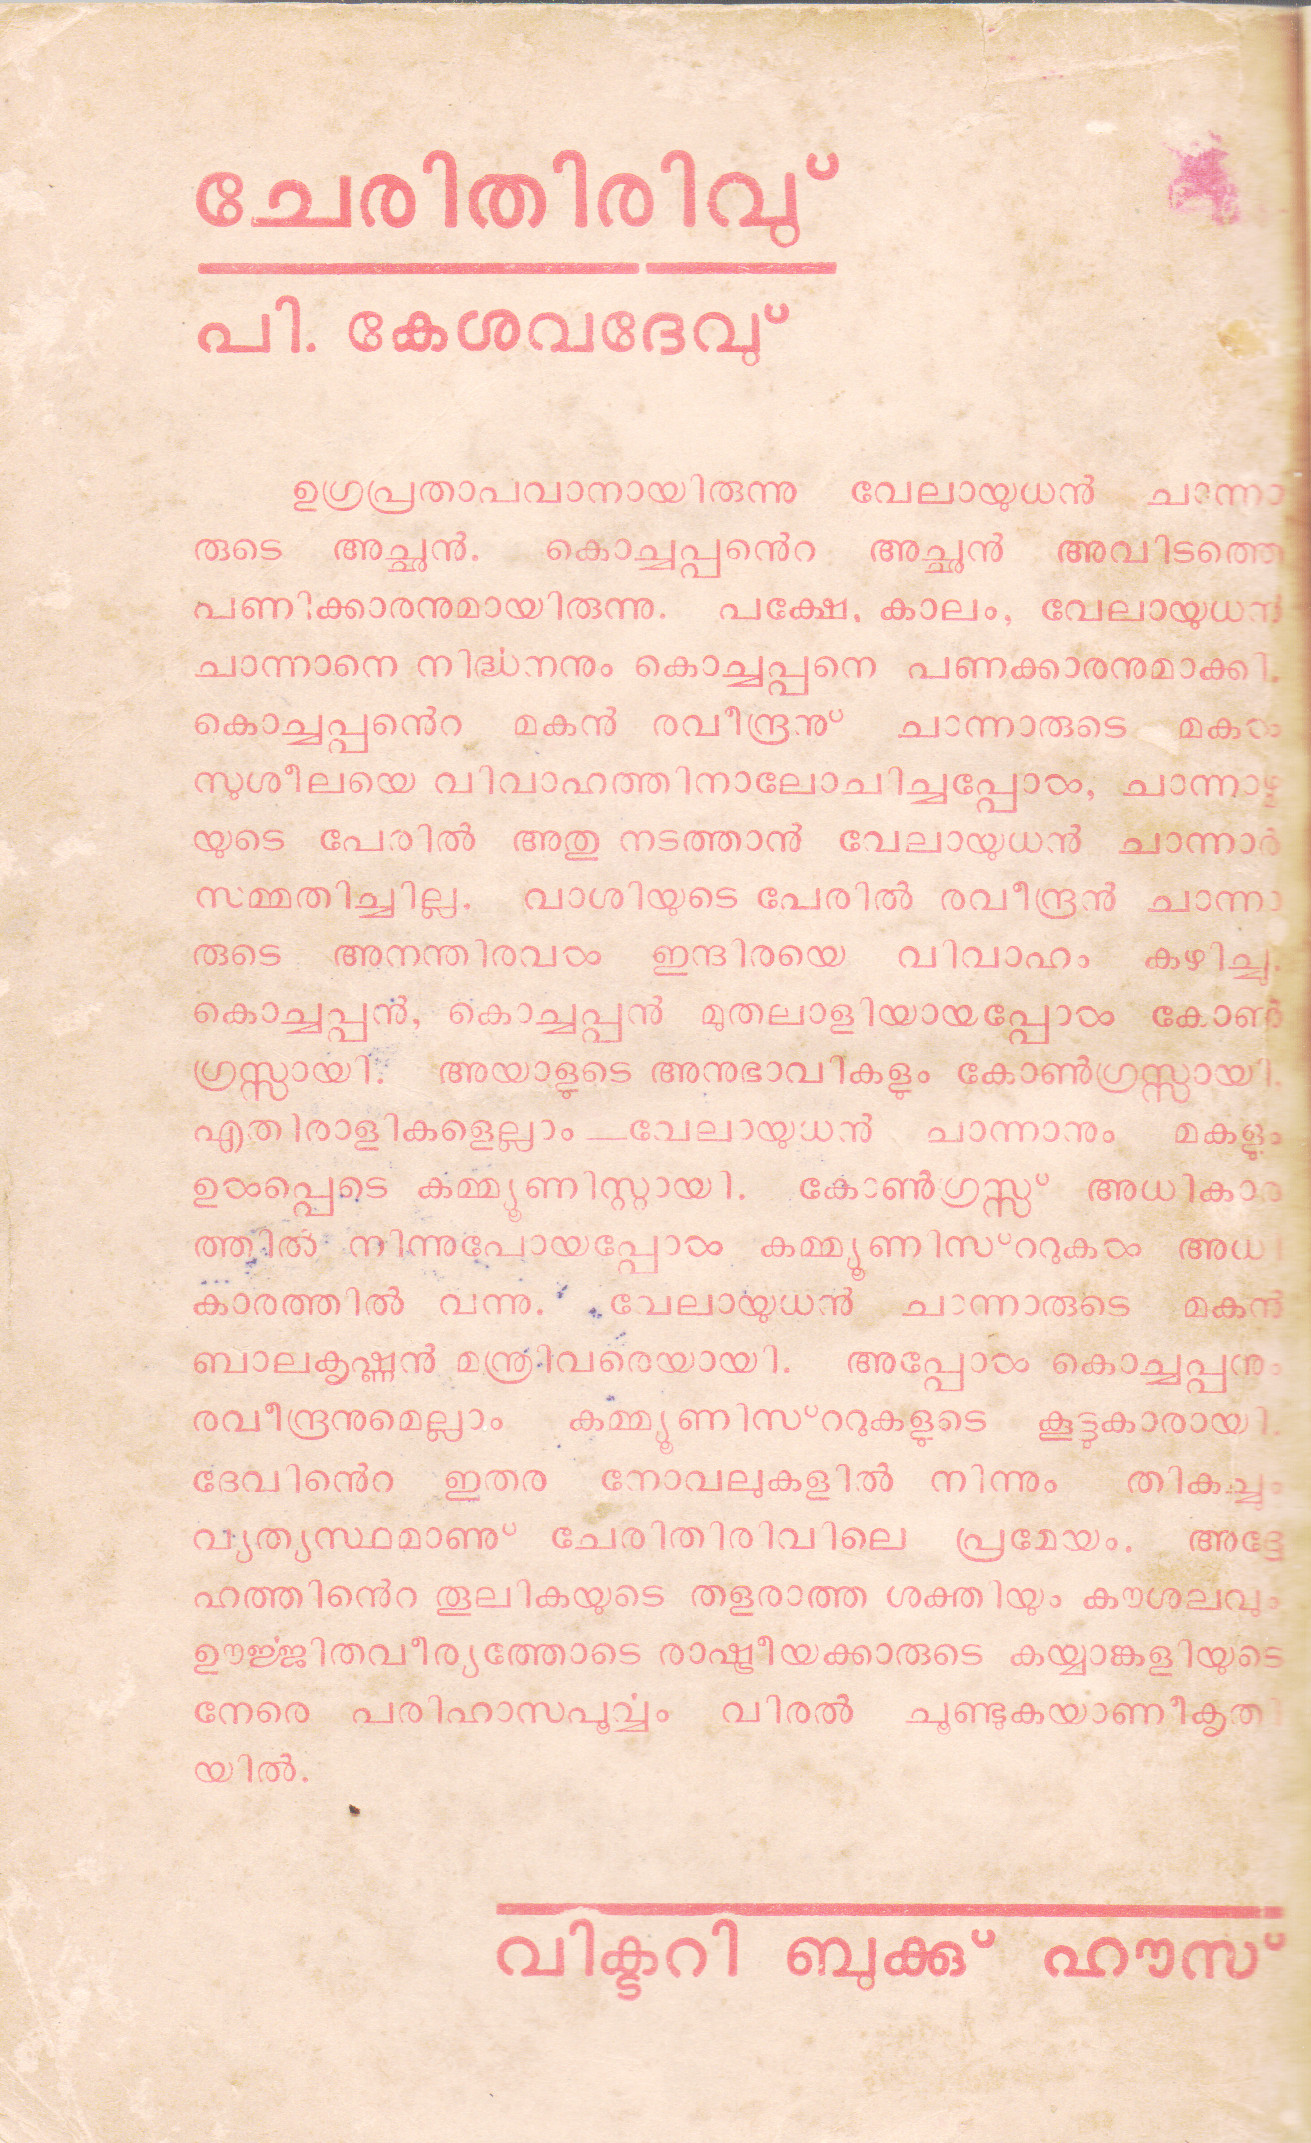 ചേരിതിരിവു്
പി. കേശവദേവു്
ഉഗ്രപ്രതാപവാനായിരുന്നു വേലായുധൻ ചാന്നാ
രുടെ അച്ഛൻ. കൊച്ചപ്പൻെറ അച്ഛൻ അവിടത്തെ
പണിക്കാരനുമായിരുന്നു. പക്ഷേ, കാലം, വേലായുധൻ
ചാന്നാനെ നിർദ്ധനനും കൊച്ചപ്പനെ പണക്കാരനുമാക്കി.
കൊച്ചപ്പൻെറ മകൻ രവീന്ദ്രനു് ചാന്നാരുടെ മകൾ
സുശീലയെ വിവാഹത്തിനാലോചിച്ചപ്പോൾ,
യുടെ പേരിൽ അതു നടത്താൻ വേലായുധൻ ചാന്നാർ
സമ്മതിച്ചില്ല. വാശിയുടെ പേരിൽ രവീന്ദ്രൻ ചാന്നാ
രുടെ അനന്തിരവൾ ഇന്ദിരയെ വിവാഹം കഴിച്ചു.
കൊച്ചപ്പൻ, കൊച്ചപ്പൻ മുതലാളിയായപ്പോൾ കോൺ
ഗ്രസ്സായി. അയാളുടെ അനുഭാവികളും കോൺഗ്രസ്സായി.
എതിരാളികളെല്ലാം —വേലായുധൻ ചാന്നാനും മകളും
ഉൾപ്പെടെ കമ്മ്യൂണിസ്റ്റായി. കോൺഗ്രസ്സ് അധികാര
ത്തിൽ നിന്നുപോയപ്പോൾ കമ്മ്യൂണിസ്ററുകൾ അധി
കാരത്തിൽ വന്നു. വേലായുധൻ ചാന്നാരുടെ മകൻ
ബാലകൃഷ്ണൻ മന്ത്രിവരെയായി. അപ്പോൾ കൊച്ചപ്പനും
രവീന്ദ്രനുമെല്ലാം കമ്മ്യൂണിസ്ററുകളുടെ കൂട്ടുകാരായി.
ദേവിൻെറ ഇതര നോവലുകളിൽ നിന്നും തികച്ചും
വ്യത്യസ്ഥമാണു് ചേരിതിരിവിലെ പ്രമേയം. അദ്ദേ
ഹത്തിൻെറ തൂലികയുടെ തളരാത്ത ശക്തിയും കൗശലവും
ഊർജ്ജിതവീര്യത്തോടെ രാഷ്ട്രീയക്കാരുടെ കയ്യാങ്കളിയുടെ
നേരെ പരിഹാസപൂർവ്വം വിരൽ ചൂണ്ടുകയാണീകൃതി
യിൽ.
വിക്ടറി ബുക്കു് ഹൗസ്